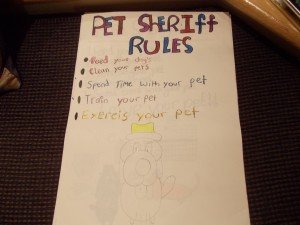 PET SHERIFF
RULES
Feed your dog's
Clean your pets
Spend Time with your pet
Train your pet
Exercis your pet